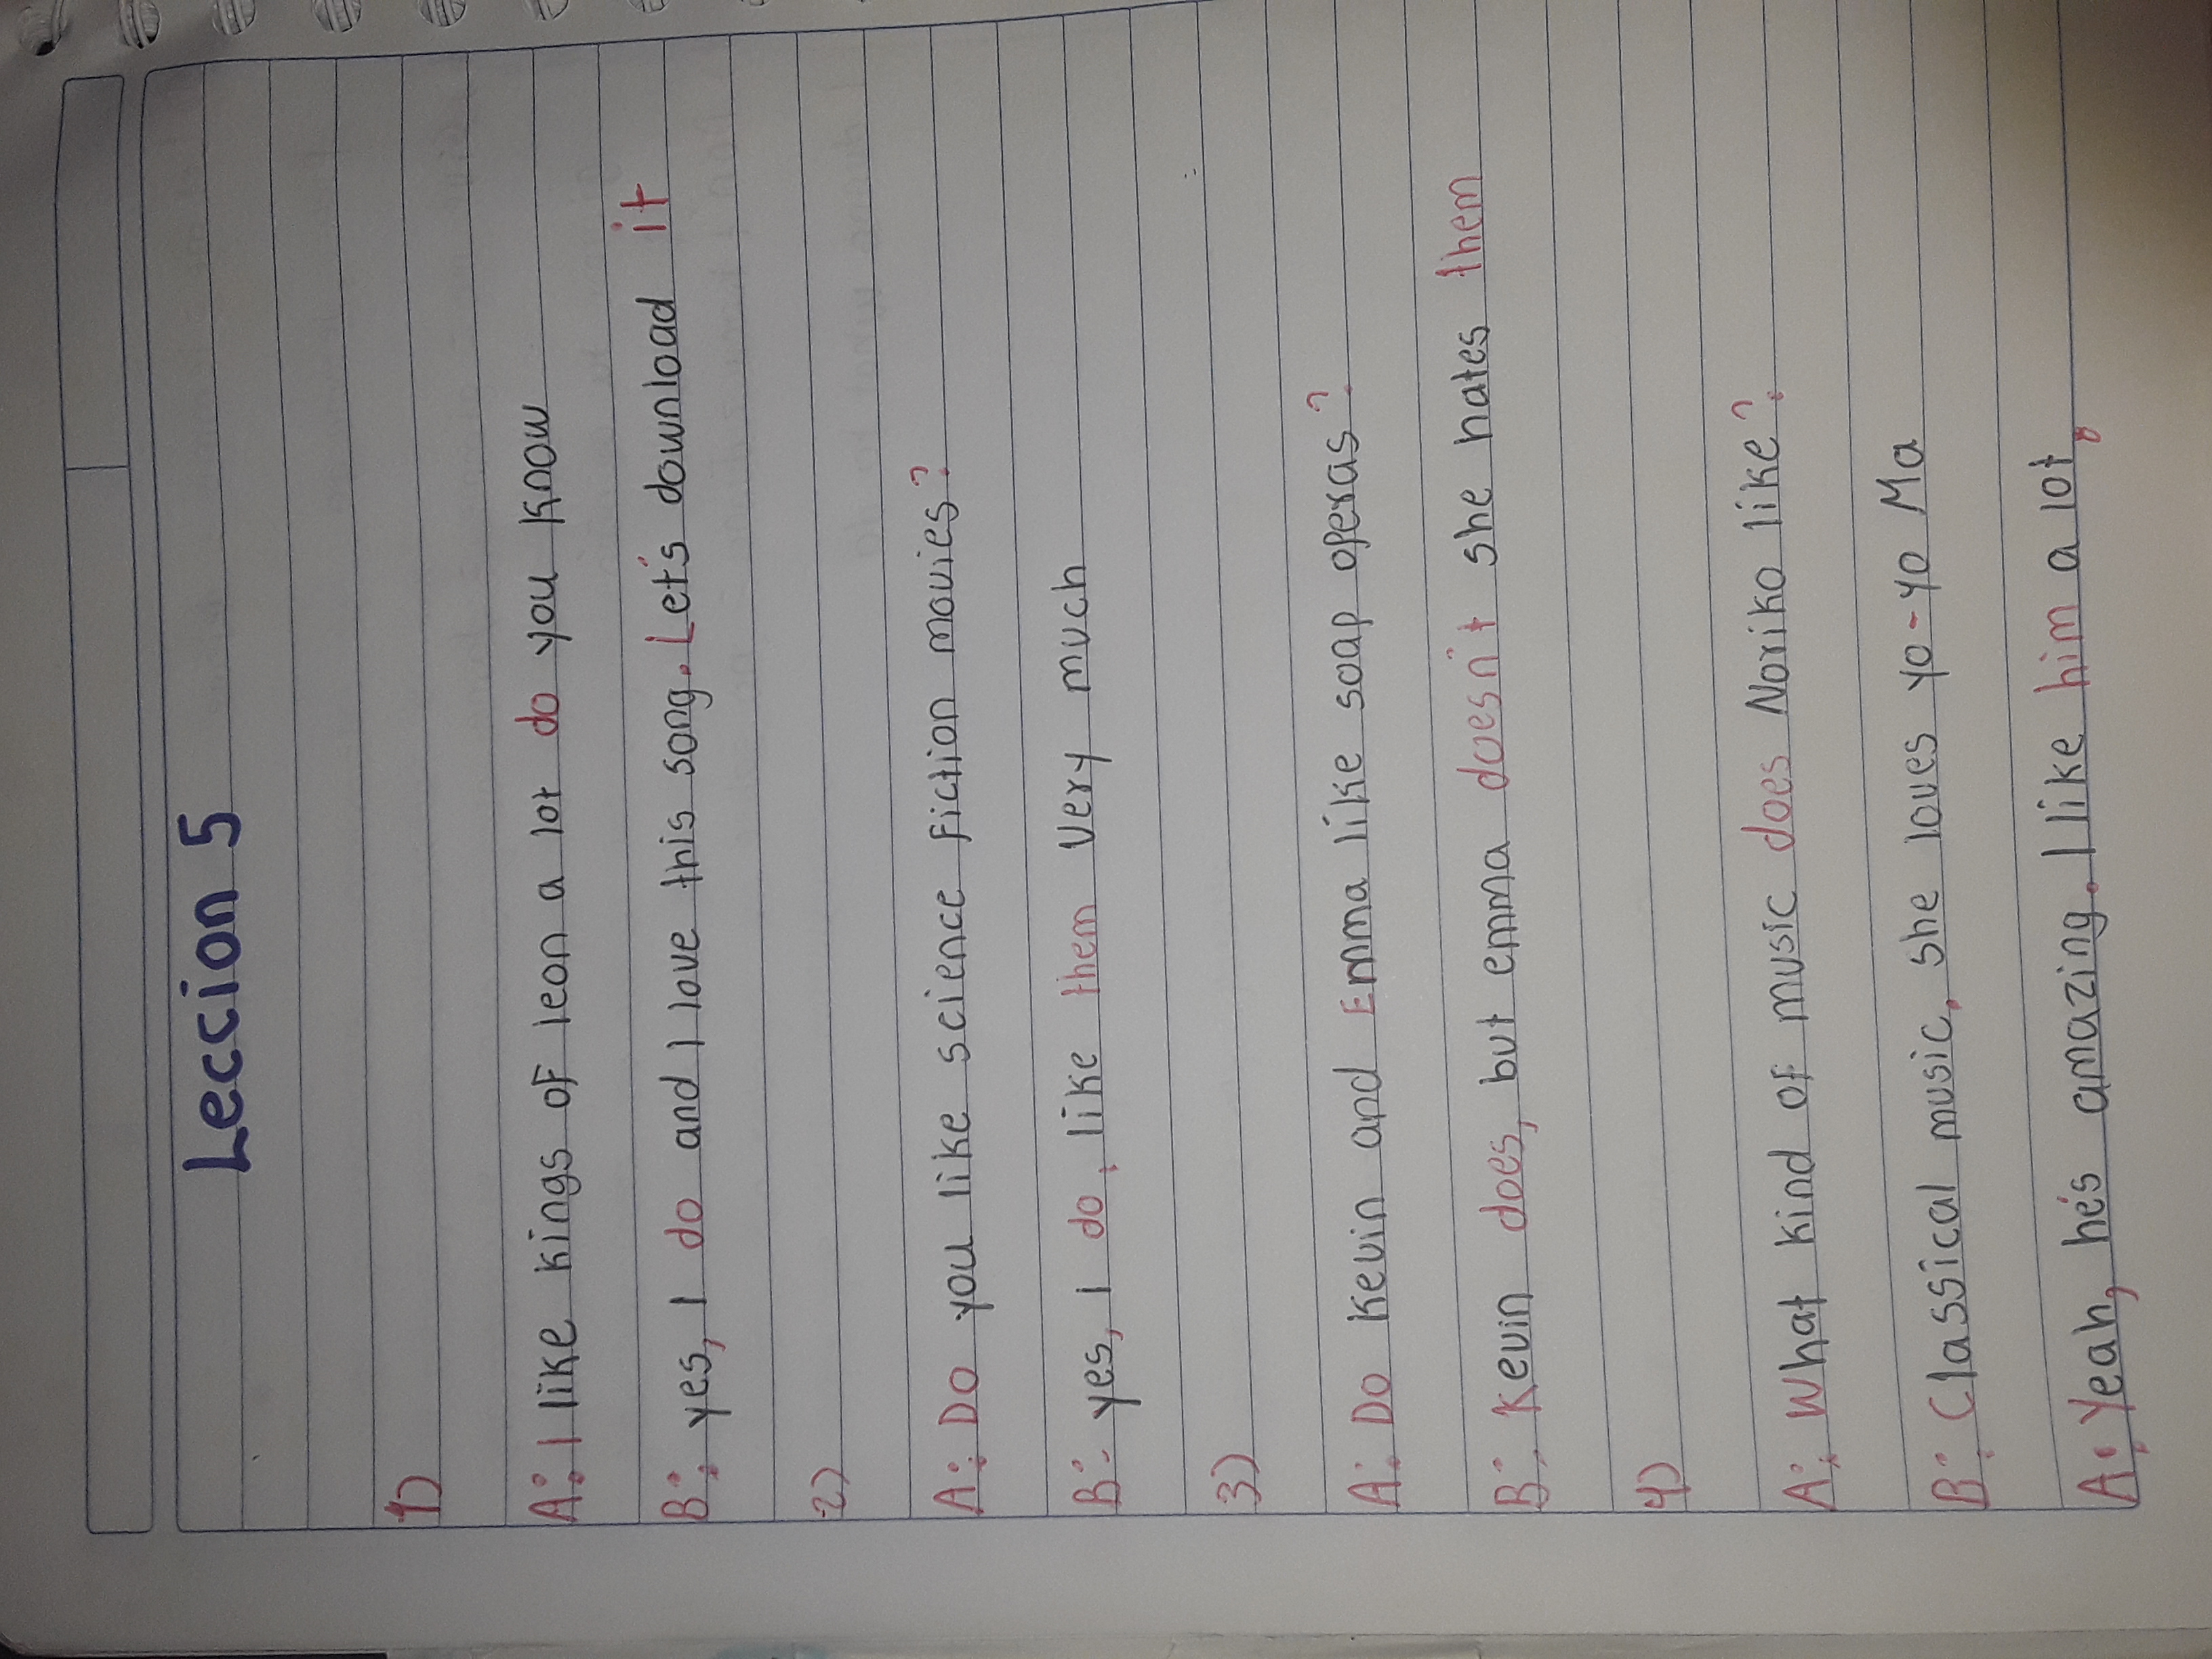 Leccion 5
1)
A: I like kings of leon a lot do you know
B: yes, I do and I love this song. Let's download it
2)
A: Do you like science fiction movies?
B: yes, I do. like them Very much
3)
A: Do Kevin and Emma like soap operas?
B: Kevin does, but emma doesn't she hates them
4)
A: What kind of music does Noriko like?
B: Classical music, she loves yo-yo Ma
A: Yeah, he's amazing. I like him a lot,